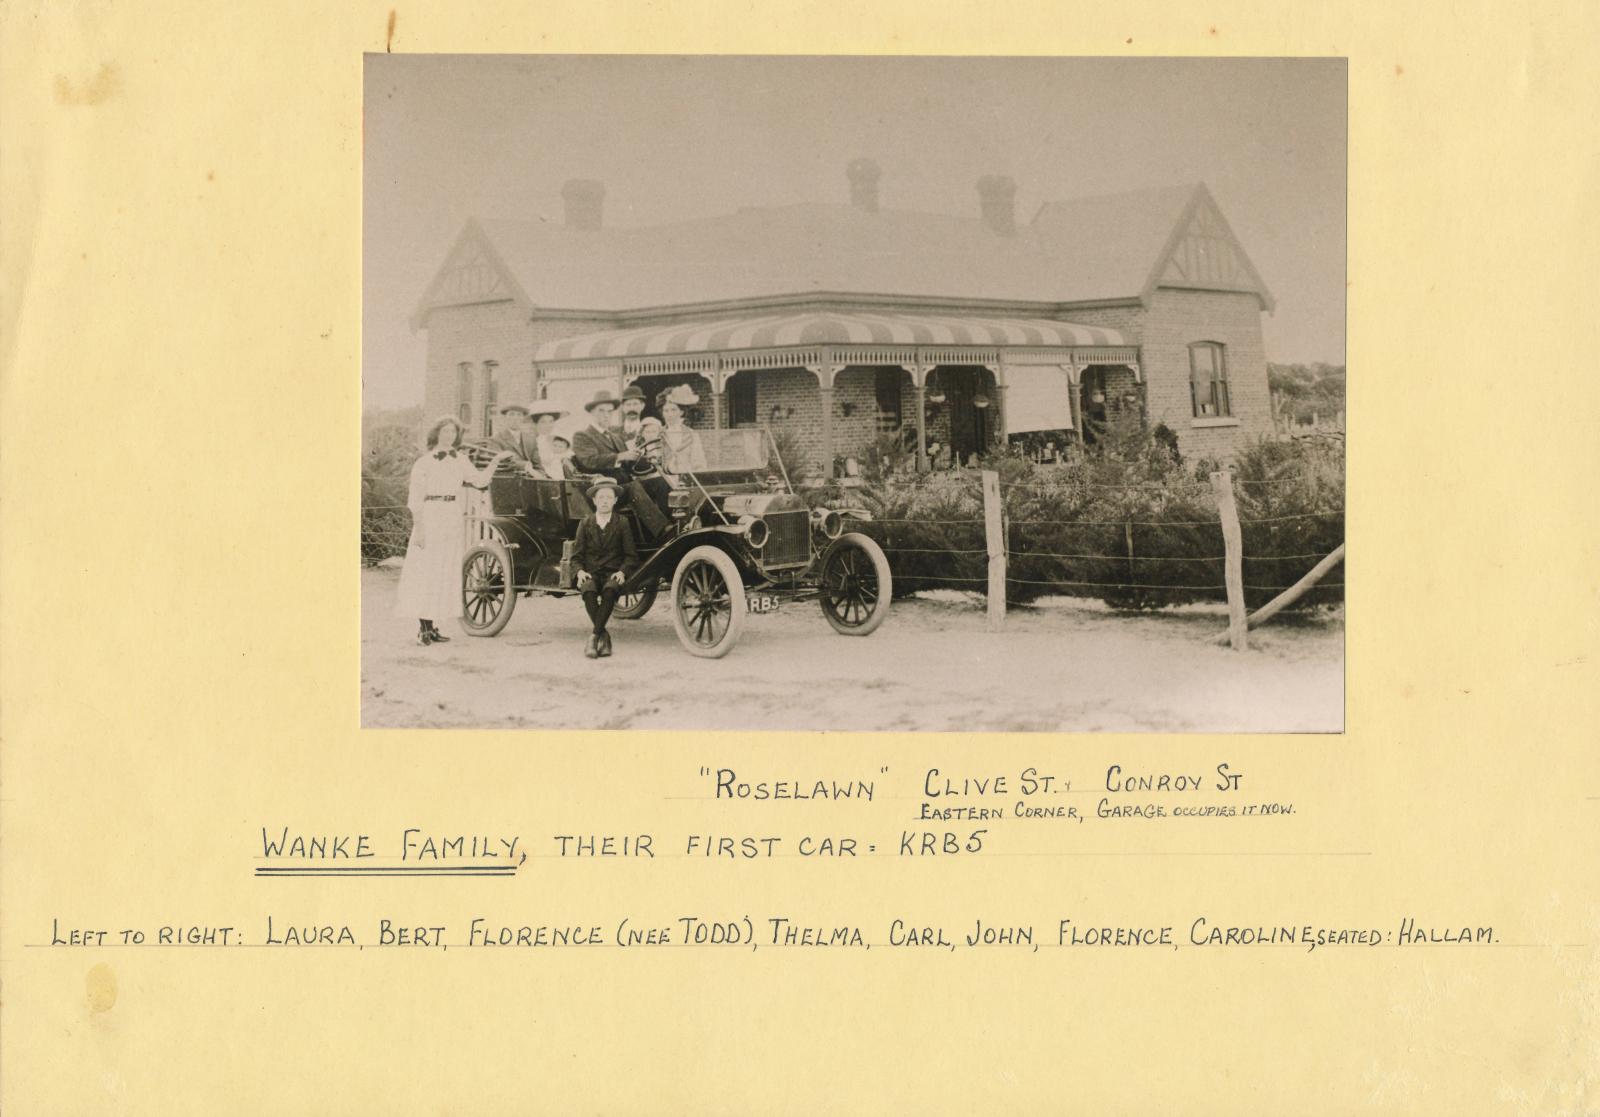 KRB5
"ROSELAWN" CLIVE ST. & CONROY ST
EASTERN CORNER, GARAGE OCCUPIES IT NOW.
WANKE FAMILY, THEIR FIRST CAR = KRB5
LEFT TO RIGHT: LAURA, BERT, FLORENCE (NEE TODD), THELMA, CARL, JOHN, FLORENCE, CAROLINE, SEATED: HALLAM.